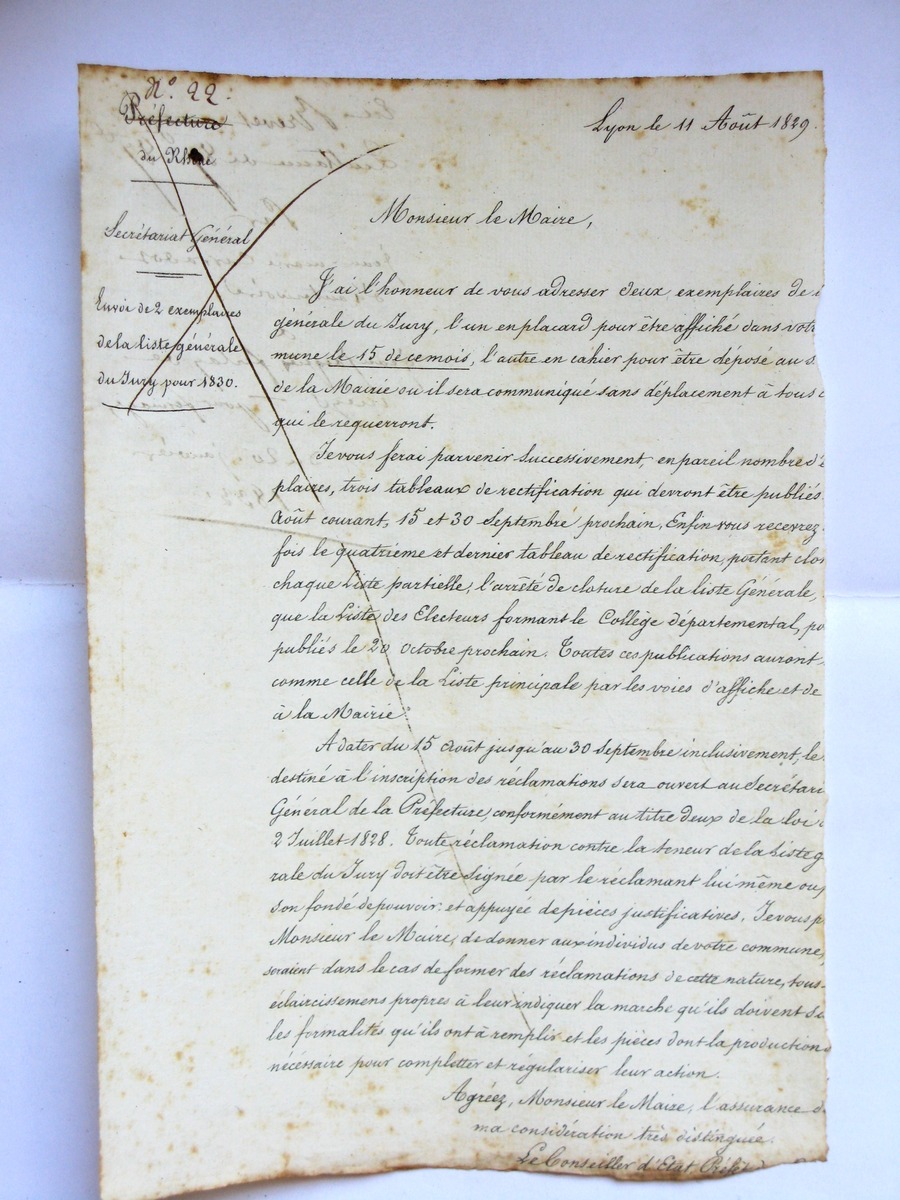 N.° 22.
Préfecture
du Rhône
Secrétariat Général
Envoi de 2 exemplaires
de la liste générale
du Jury pour 1830.
Lyon le 11 Août 1829.
Monsieur le Maire,
J'ai l'honneur de vous adresser deux exemplaires de
générale du Jury, l'un en placard pour être affiché dans vot
mune le 15 de ce mois, l'autre en cahier pour être déposé au
de la Mairie ou il sera communiqué sans déplacement à tous
qui le requerront.
Je vous ferai parvenir successivement, en pareil nombre d'
plaires, trois tableaux de rectification qui devront être publiés
Août courant, 15 et 30 Septembre prochain. Enfin vous recevrez
fois le quatrieme et dernier tableau de rectification, portant clo
chaque Liste partielle, l'arrêté de cloture de la liste Générale,
que la Liste des Electeurs formant le Collège départemental, po
publiés le 20 octobre prochain. Toutes ces publications auront
comme celle de la Liste principale par les voies d'affiche et de
à la Mairie.
A dater du 15 Août jusqu'au 30 Septembre inclusivement, le
destiné à l'inscription des réclamations sera ouvert au Secrétari
Général de la Préfecture, conformément au titre deux de la loi
2 Juillet 1828. Toute réclamation contre la teneur de la Liste g
rale du Jury doit être signée par le réclamant lui même ou
son fondé de pouvoir et appuyée de pièces justificatives. Je vous p
Monsieur le Maire, de donner aux individus de votre commune,
seraient dans le cas de former des réclamations de cette nature, tous
éclaircissemens propres à leur indiquer la marche qu'ils doivent
les formalités qu'ils ont à remplir et les pièces dont la production
nécessaire pour completter et régulariser leur action.
Agréez, Monsieur le Maire, l'assurance d
ma considération très distinguée.
Le Conseiller d'Etat Préfet